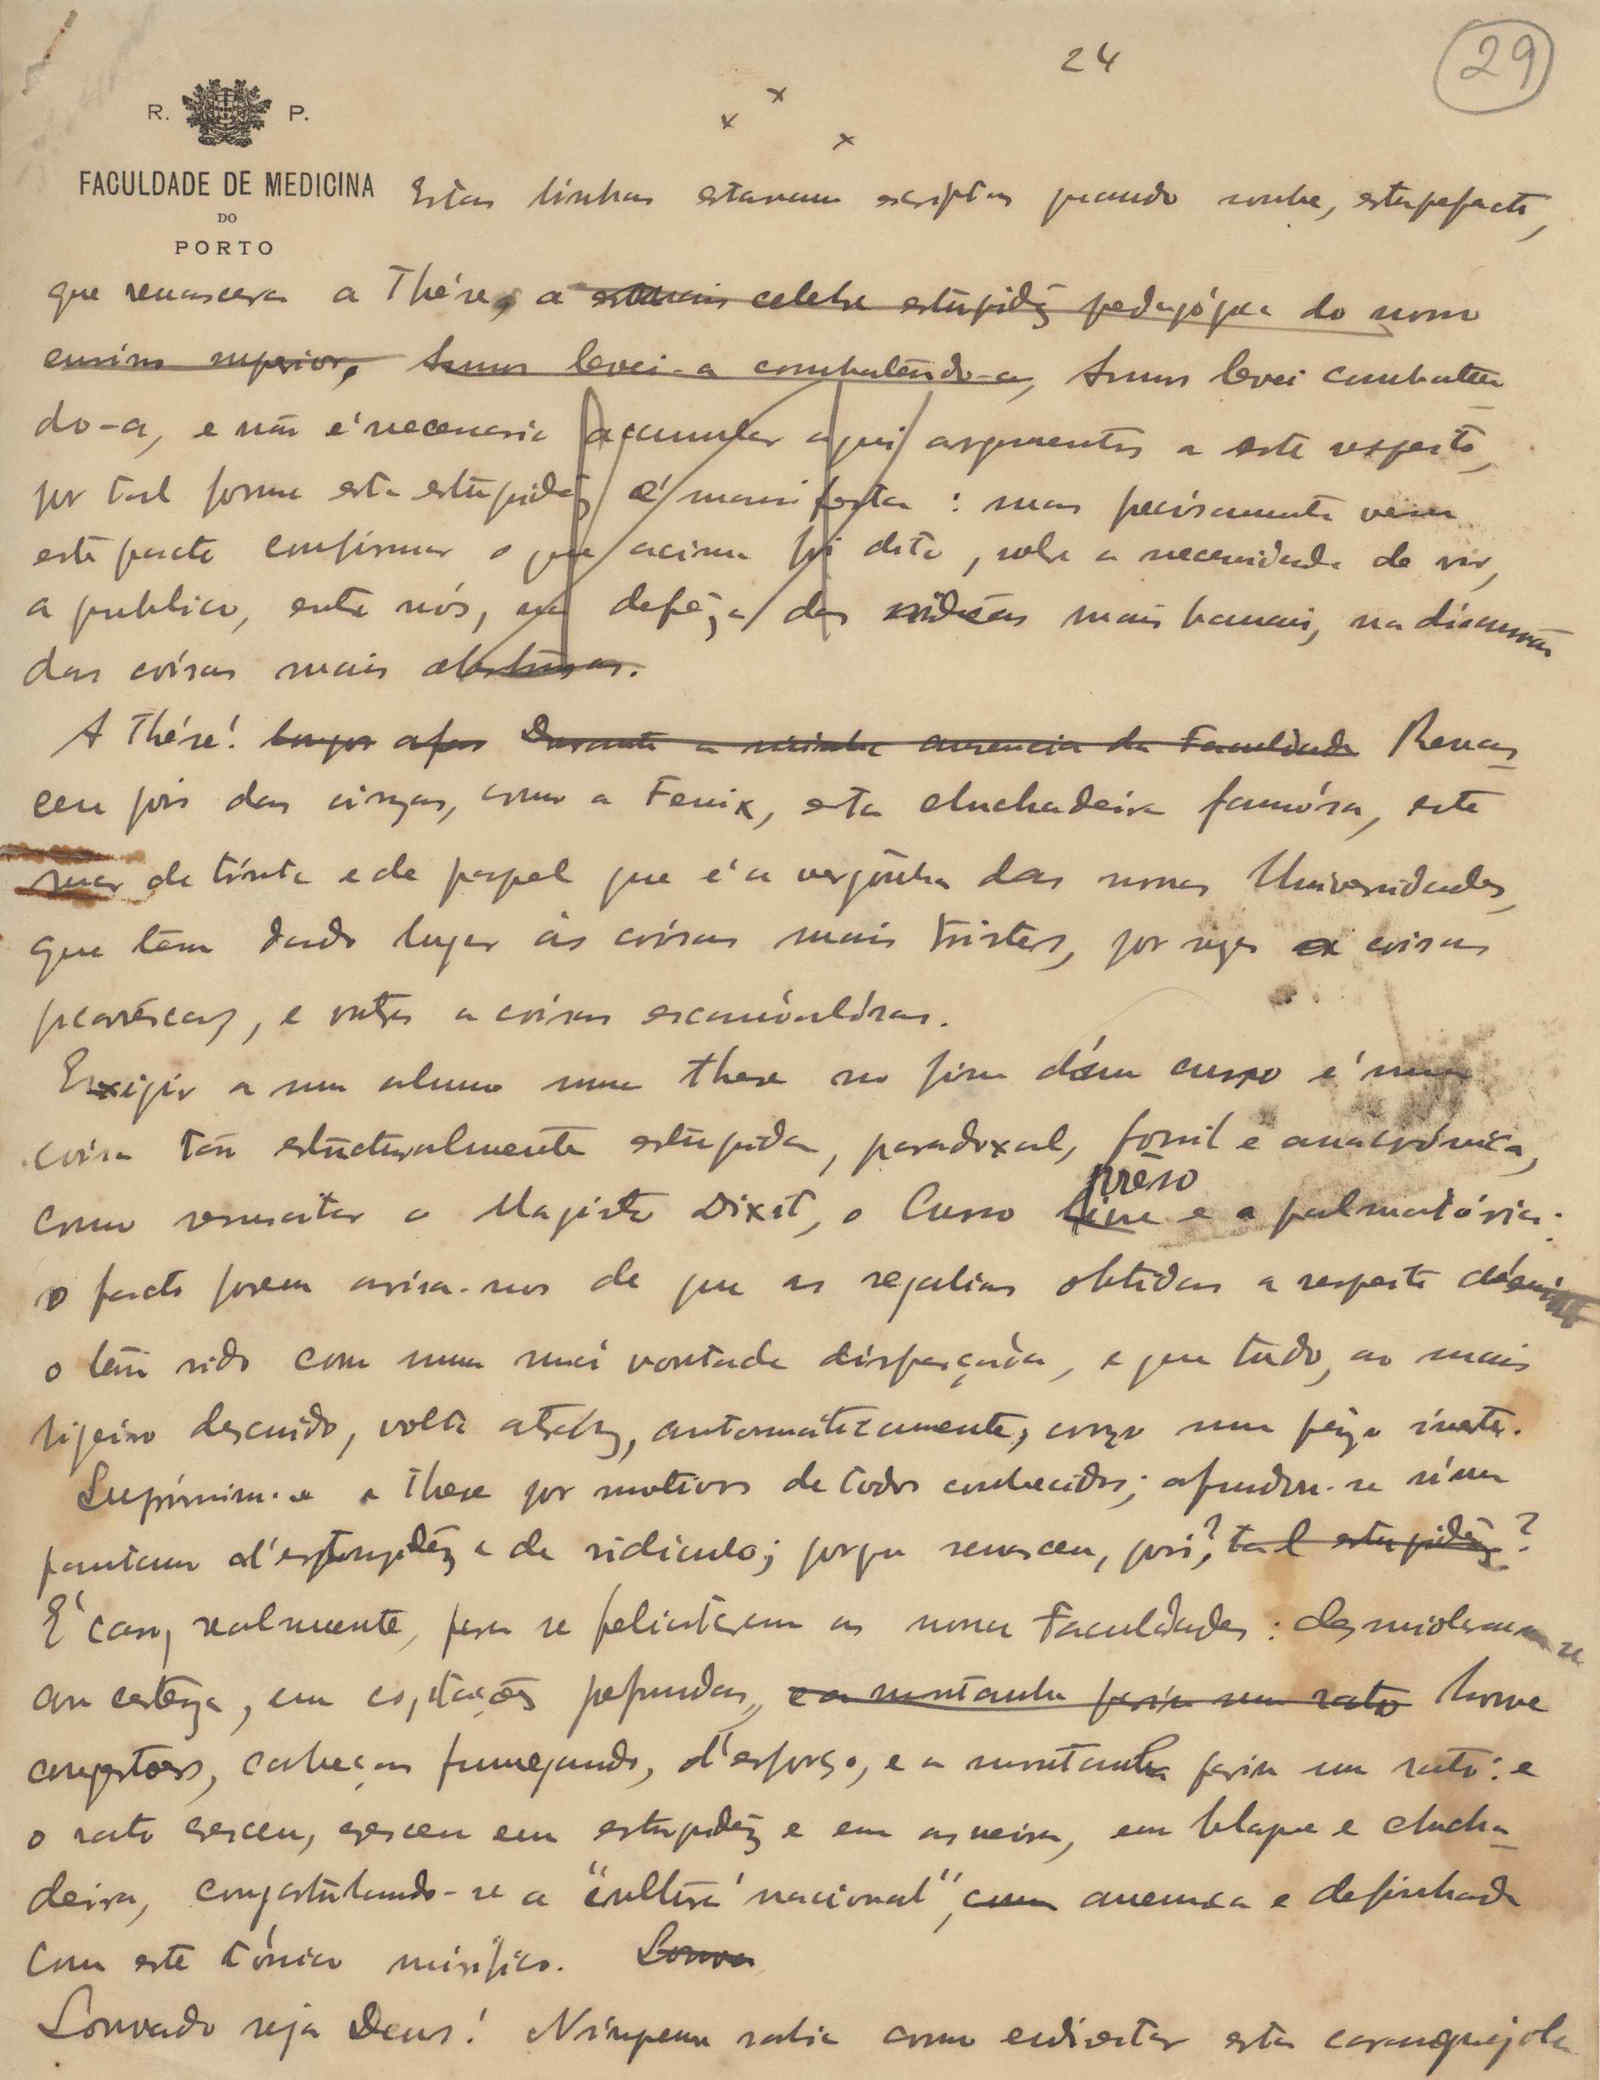 24
29
R. P.
FACULDADE DE MEDICINA
DO
PORTO
Estas linhas estavam escriptas quando soube, estupefacto,
que renascera a Thése, a mais celebre estupidêz pedagógica do nosso
ensino superior, Annos levei-a combatêndo-a, Annos levei combaten
do-a, e não é necessario accumular aqui argumentos a este respeito,
por tal forma esta estupidêz é manifesta: mas precisamente vem
este facto confirmar o que acima foi dito, sobre a necessidade de vir,
a publico, entre nós, na defêza das idéas mais banais, na discussão
das coisas mais abstrusas.
A Thése! Durante a minha ausencia da Faculdade Renas
ceu pois das cinzas, como a Fenix, esta chuchadeira famósa, este
mar de tinta e de papel que é a vergônha das nossas Universidades,
que tem dado lugar ás coisas mais tristes, por vezes a coisas
picarescas, e outras a coisas escandalósas.
Exigir a um alumno uma these no fim d'um curso é uma
coisa tão estructuralmente estupida, paradoxal, fossil e anacrónica,
como ressuscitar o Magister Dixit, o Curso prêso e a palmatória:
o facto porem avisa-nos de que as regalias obtidas a respeito d'ensino
o têm sido com uma má vontade disfarçada, e que tudo, ao mais
ligeiro descuido, volta atráz, automáticamente, como um pêzo inerte.
Suprimiu-se a These por motivos de todos conhecidos; afundou-se n'um
pantano d'estupidêz e de ridiculo; porque renasceu, pois?, tal estupidêz?
É caso, realmente, para se felicitarem as nossas Faculdades: desmiolaram-se
com certêza, em cogitações profundas, e a montanha pariu um rato houve
congestões, cabeças fumegando, d'esforço, e a montanha pariu um rato: e
o rato cresceu, cresceu em estupidêz e em asneira, em blague e chucha
deira, congratulando-se a "cultura nacional", anemica e definhada
com este tónico mirifico. Louva
Louvado seja Deus! Ninguem sabia como endireitar esta caranguejola